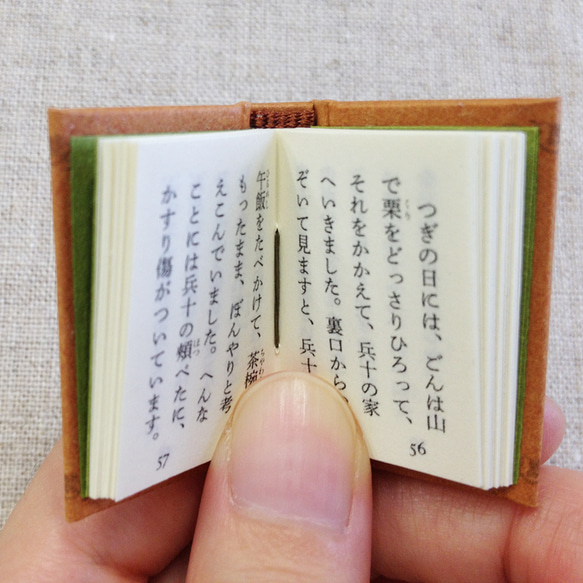 つぎの日には、ごんは山
で栗をどっさりひろって、
それをかかえて、兵十の家
へいきました。裏口から
ぞいて見ますと、兵十
56
午飯をたべかけて、茶椀
もったまま、ぼんやりと考
えこんでいました。へんな
ことには兵十の頬ぺたに、
かすり傷がついています。
57